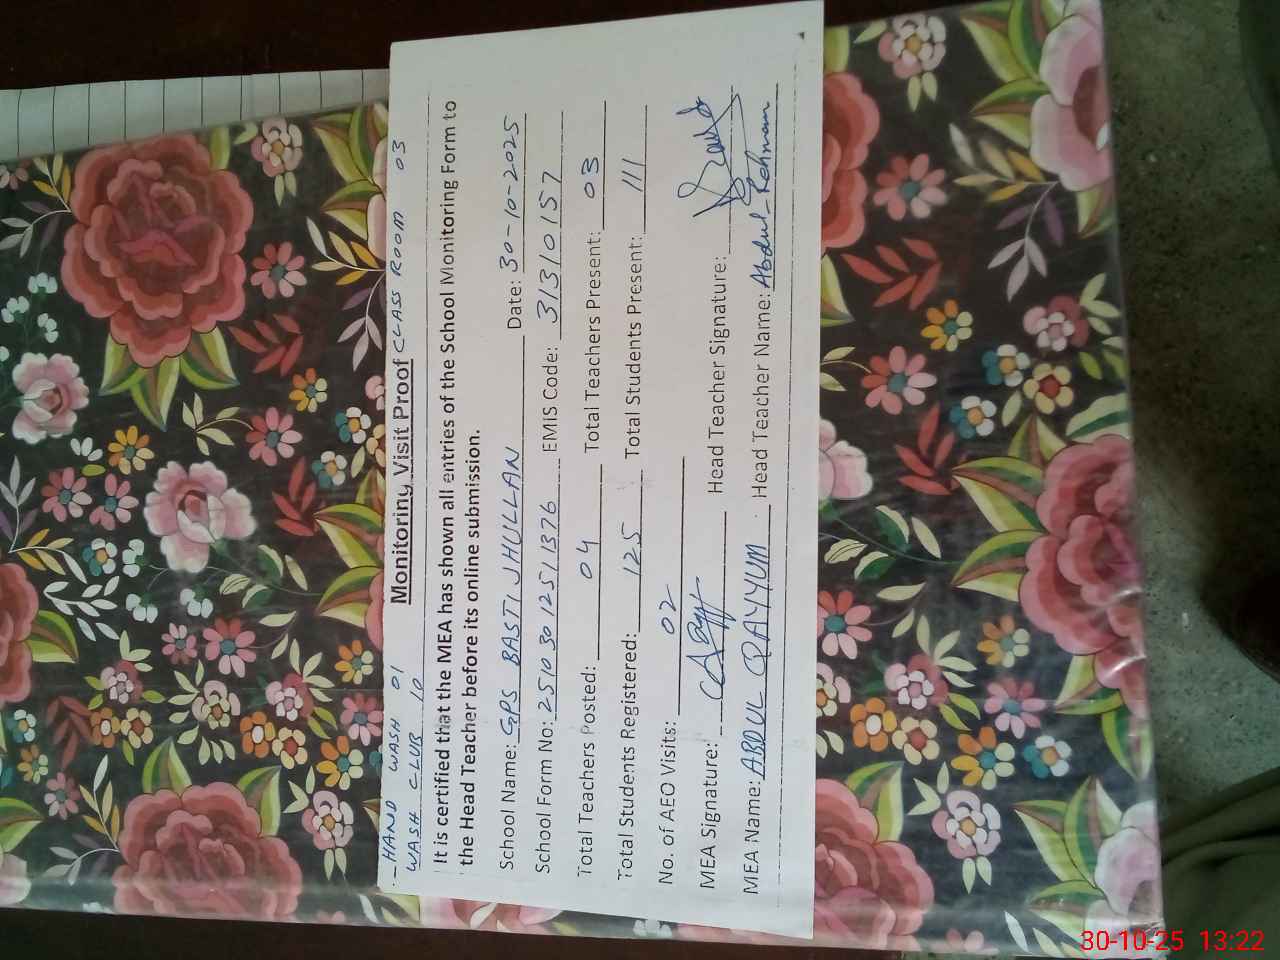 HAND WASH 01
WASH CLUB 10
CLASS ROOM 03
Monitoring Visit Proof
It is certified that the MEA has shown all entries of the School Monitoring Form to
the Head Teacher before its online submission.
School Name: GPS BASTI JHULLAN Date: 30-10-2025
School Form No: 25103012511376 EMIS Code: 31310157
Total Teachers Posted: 04 Total Teachers Present: 03
Total Students Registered: 125 Total Students Present: 111
No. of AEO Visits: 02
MEA Signature: Head Teacher Signature:
MEA Name: ABDUL QAYYUM Head Teacher Name: Abdul_Rehman
30-10-25 13:22